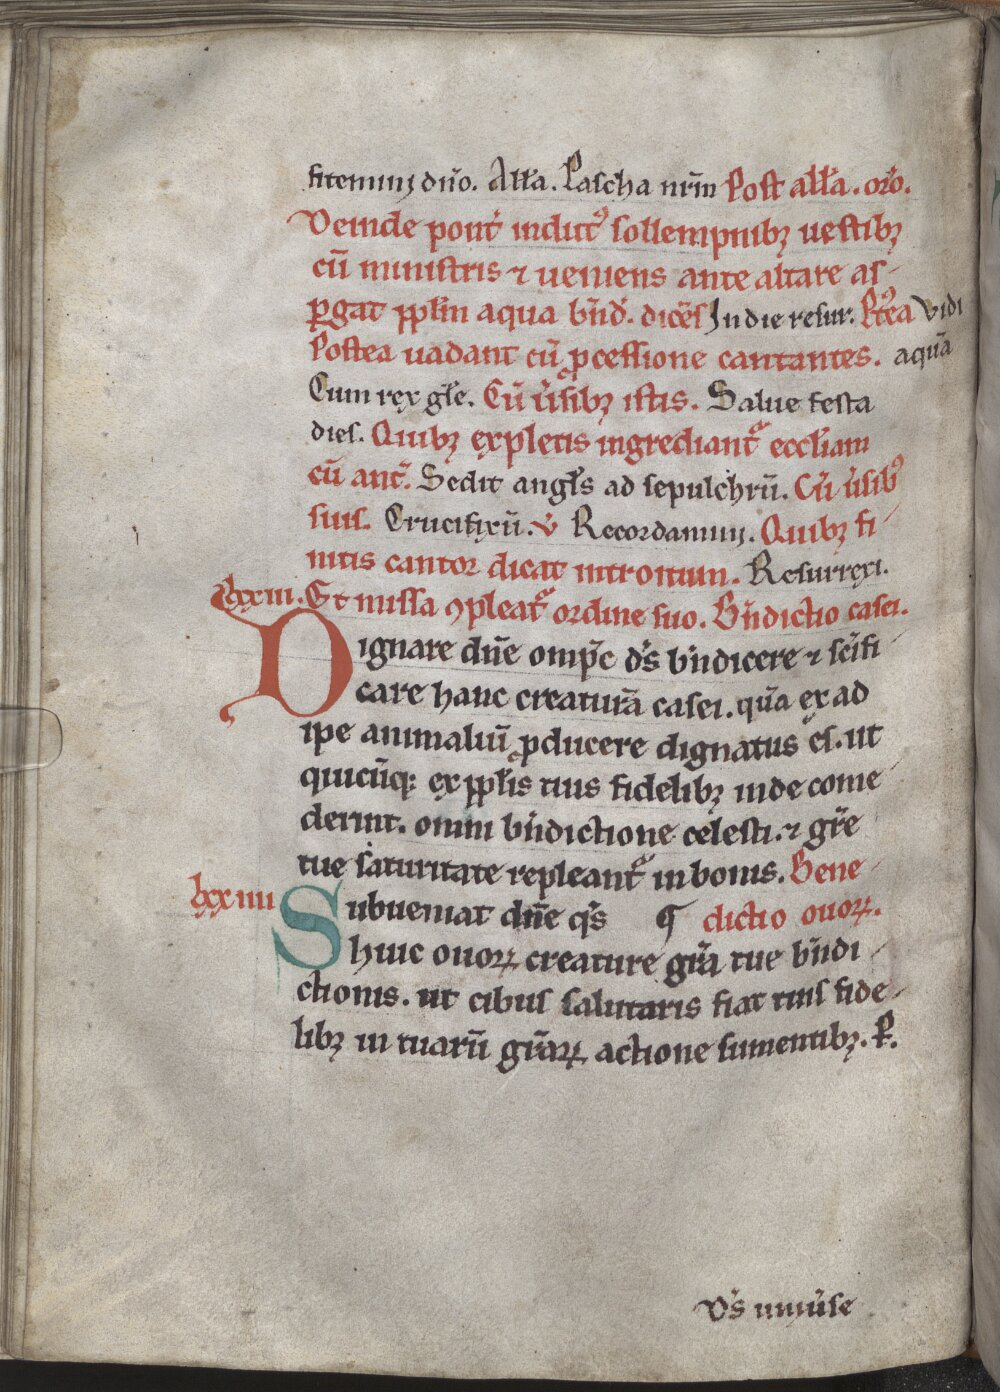 fitemini dn̄o. All̄a. Pascha nr̄m Post all̄a. or̄o.
Deinde pont̄ induť sollempnibꝫ uestibꝫ
cū ministris ⁊ ueniens ante altare as-
ꝑgat ppl̄m aqua bn̄d. dicēs In die resur. Pt̄ea Vidi
Postea uadant cū ꝓcessione cantantes. aquā
Cum rex gl̄e. Cū úsibꝫ istis. Salue festa
dies. Quibꝫ expletis ingrediant᷑ eccl̄iam
cū ant̄. Sedit angl̄s ad sepulchrū. Cū úsibꝰ
suis. Crucifixū. v̄ Recordamini. Quibꝫ fi-
nitis cantor dicat introitum. Resurrexi.
lxxiii. Et missa ꝯpleat᷑ ordine suo. Bn̄dictio casei.
Dignare dn̄e omp̄c ds̄ bn̄dicere ⁊ sc̄ifi-
care hanc creaturā casei. quā ex ad
ipe animaliū ꝓducere dignatus es. ut
quicūqꝫ ex ppl̄is tuis fidelibꝫ inde come-
derint. omni bn̄dictione celesti. ⁊ gr̄e
tue saturitate repleant᷑ in bonis. Bene-
lxxiiii Subueniat dn̄e qs̄ ¶ dictio ouoꝝ.
huic ouoꝝ creature gr̄a tue bn̄di-
ctionis. ut cibus salutaris fiat tuis fide-
libꝫ in tuarū gr̄aꝝ actione sumentibꝫ. P.
Ds̄ uniúse